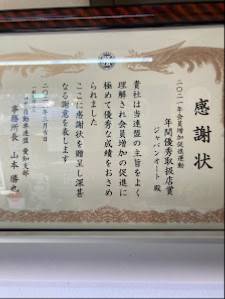 感謝状
二〇二一年会員増加促進運動
年間優秀取扱店賞
ジャパンオート 殿
貴社は当連盟の主旨をよく
理解され会員増加の促進に
極めて優秀な成績をおさめ
られました
ここに感謝状を贈呈し深甚
なる謝意を表します
自動車連盟 愛知支部
事務所長 山本勝也